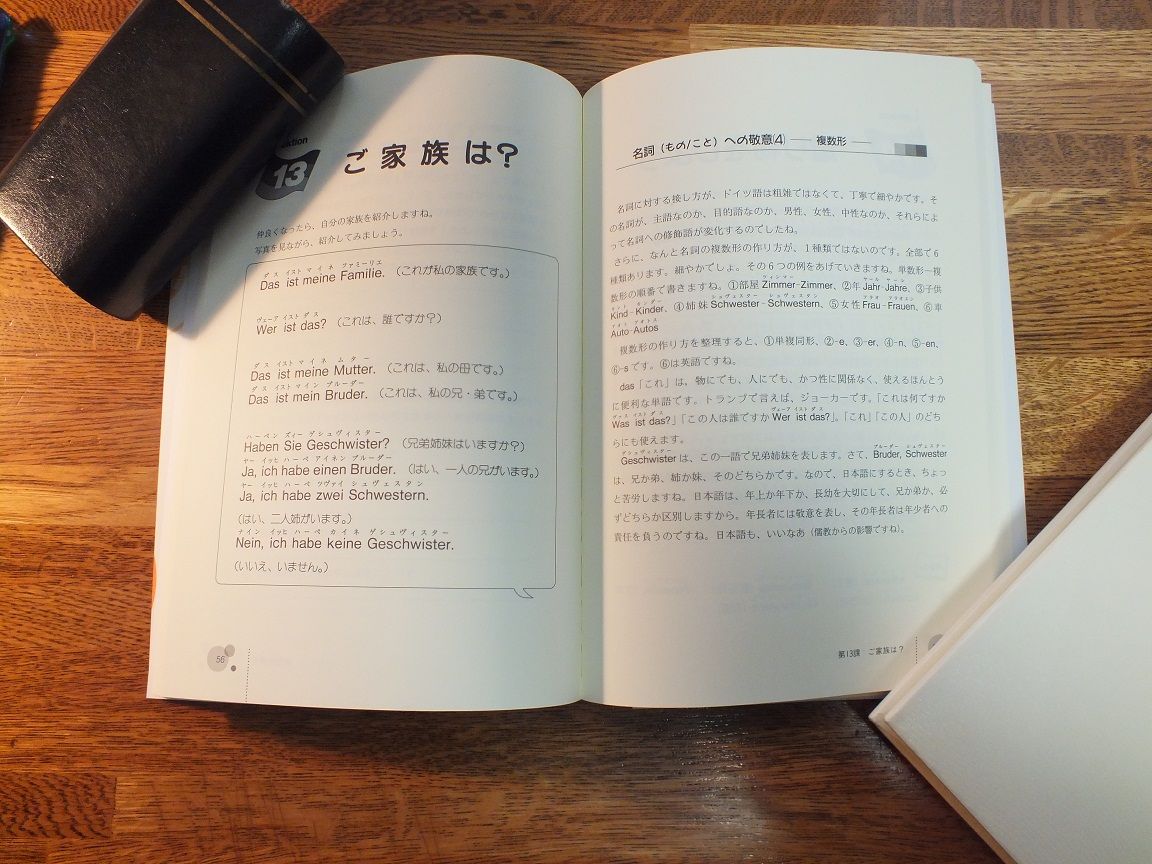 ektion
13
ご家族は?
仲良くなったら、自分の家族を紹介しますね。
写真を見ながら、紹介してみましょう。
ダス イスト マイネ ファミーリエ
Das ist meine Familie.（これが私の家族です。）
ヴェーア イスト ダス
Wer ist das?（これは、誰ですか?）
ダス イスト マイネ ムター
Das ist meine Mutter.（これは、私の母です。）
ダス イスト マイン ブルーダー
Das ist mein Bruder.（これは、私の兄・弟です。）
ハーベン ズィー ゲシュヴィスター
Haben Sie Geschwister?（兄弟姉妹はいますか?）
ヤー イッヒ ハーベ アイネン ブルーダー
Ja, ich habe einen Bruder.（はい、一人の兄がいます。）
ヤー イッヒ ハーベ ツヴァイ シュヴェスタン
Ja, ich habe zwei Schwestern.
（はい、二人姉がいます。）
ナイン イッヒ ハーベ カイネ ゲシュヴィスター
Nein, ich habe keine Geschwister.
（いいえ、いません。）
56
名詞（もの/こと）への敬意(4)── 複数形 ──
名詞に対する接し方が、ドイツ語は粗雑ではなくて、丁寧で細やかです。そ
の名詞が、主語なのか、目的語なのか、男性、女性、中性なのか、それらによ
って名詞への修飾語が変化するのでしたね。
さらに、なんと名詞の複数形の作り方が、1種類ではないのです。全部で6
種類あります。細やかでしょ。その6つの例をあげていきますね。単数形－複
ツィンマー ヤール ヤーレ
数形の順番で書きますね。①部屋 Zimmer－Zimmer、②年 Jahr－Jahre、③子供
キント キンダー シュヴェスター シュヴェスタン フラオ フラオエン
Kind－Kinder、④姉妹 Schwester－Schwestern、⑤女性 Frau－Frauen、⑥車
アオト アオトス
Auto－Autos
複数形の作り方を整理すると、①単複同形、②-e、③-er、④-n、⑤-en、
⑥-s です。⑥は英語ですね。
das「これ」は、物にでも、人にでも、かつ性に関係なく、使えるほんとう
に便利な単語です。トランプで言えば、ジョーカーです。「これは何ですか
ヴァス イスト ダス ヴェーア イスト ダス
Was ist das?」「この人は誰ですか Wer ist das?」。「これ」「この人」のどち
らにも使えます。
ゲシュヴィスター ブルーダー シュヴェスター
Geschwister は、この一語で兄弟姉妹を表します。さて、Bruder, Schwester
は、兄か弟、姉か妹、そのどちらかです。なので、日本語にするとき、ちょっ
と苦労しますね。日本語は、年上か年下か、長幼を大切にして、兄か弟か、必
ずどちらか区別しますから。年長者には敬意を表し、その年長者は年少者への
責任を負うのですね。日本語も、いいなあ（儒教からの影響ですね）。
第13課 ご家族は?